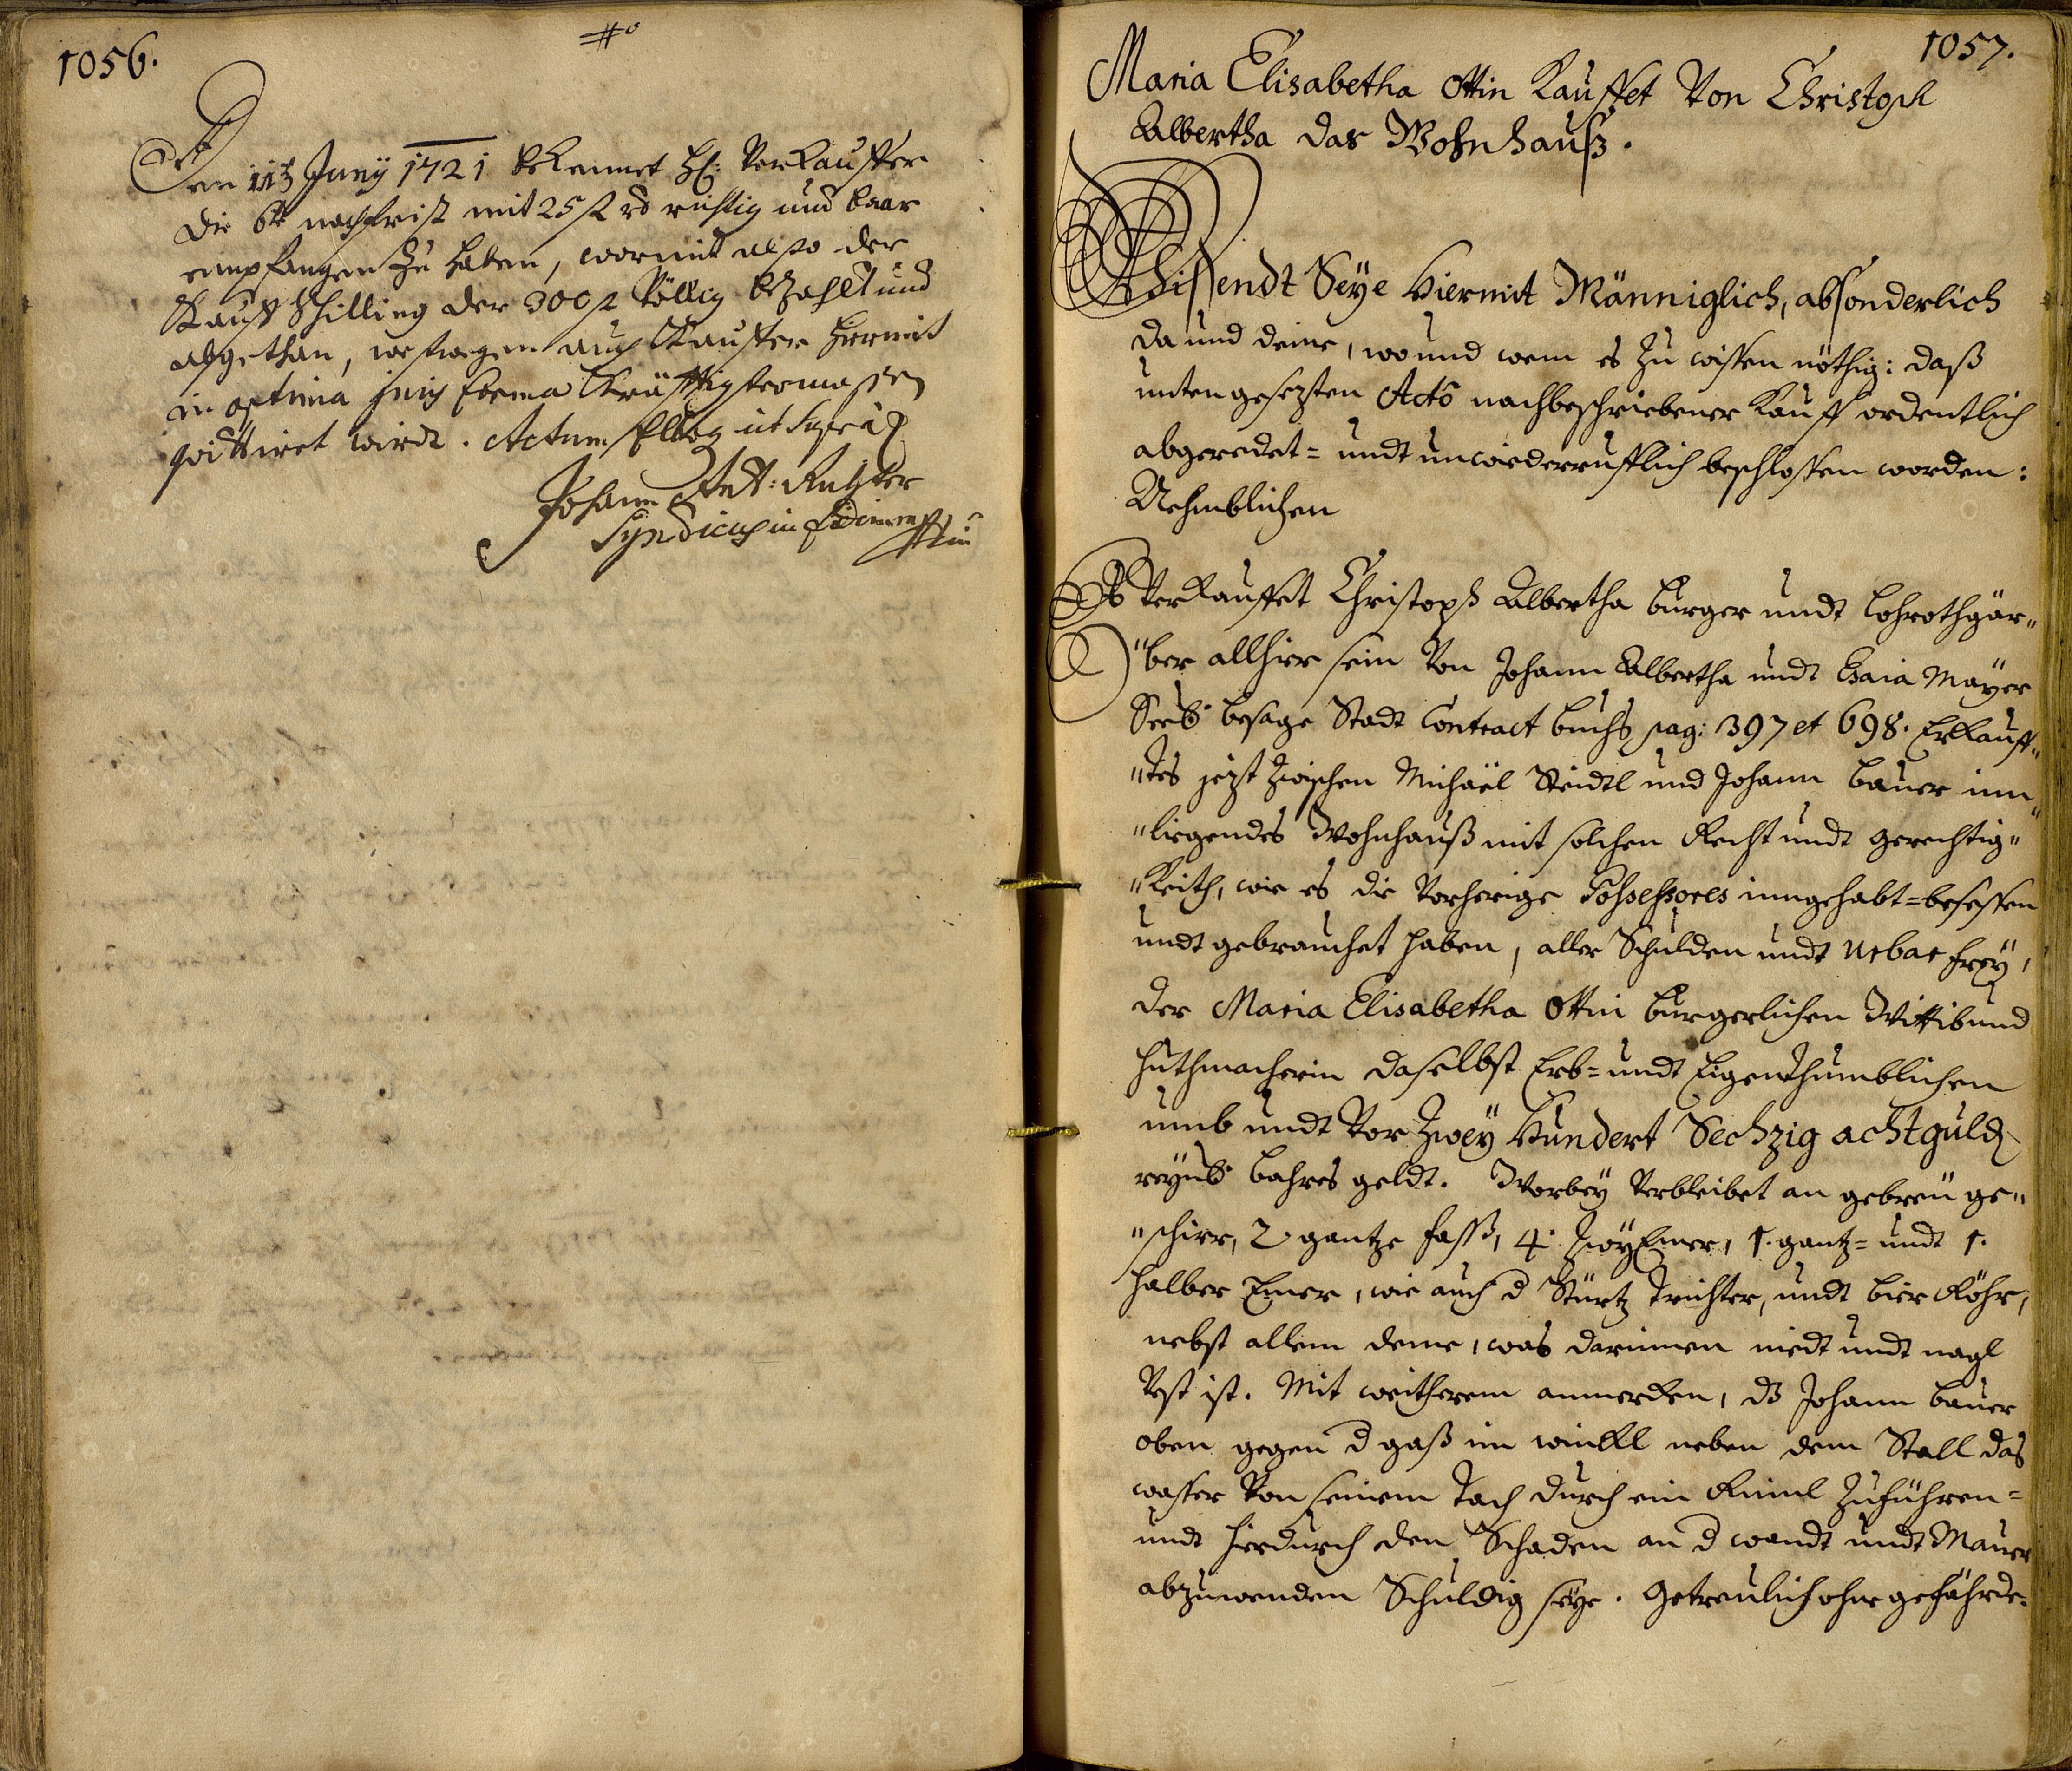 1056.
Den 11t Junÿ 1721 bekennet H: Verkauffer
die 6te nachfrist mit 25 f rh richtig und baar
empfangen zu haben, wormit also der
Kauff Schilling der 300 f völlig bezahlt und
abgethan, weswegen auch Kauffer hiermit
in optima juris forma kräfftigstermassen
quittiret wirdt. Actum Elbog ut supra
Johann Ant: Richter
Syndicus in fidem
1057.
Maria Elisabetha Ottin Kauffet Von Christoph
Albertha das Wohnhauß.
Wissendt Seÿe Hiermit Männiglich, absonderlich
da und deme, wo und wem es zu wissen nöthig: daß
unten gesezten Acto nachbeschriebener Kauff ordentlich
abgeredet= undt unwiederrufflich beschlossen worden:
Nehmblichen
Es Verkauffet Christoph Albertha burger undt Lohrothgär"
"ber allhier sein Von Johann Albertha undt Esaia Mayer
Seel: besage Stadt Contract buchs pag: 397 et 698. Erkauff"
"tes jezt zwischen Michaël Steidtl und Johann Bauer inn"
"liegendes Wohnhauß mit solchen Recht undt gerechtig"
"keith, wie es die Vorherige Possessores inngehabt=besessen
undt gebrauchet haben, aller Schulden undt Urbar freÿ,
der Maria Elisabetha Ottin burgerlichen Wittib und
Huthmacherin daselbst Erb= undt Eigenthumblichen
umb undt Vor Zweÿ Hundert Sechzig acht guld
reÿnl: bahres geldt. Worbeÿ Verbleibet an gebreu ge"
"schirr, 2 gantze fass, 4. Zweÿ Emer, 1. gantz= undt 1.
halber Emer, wie auch d Stürtz Trichter, undt bier Röhr,
nebst allem deme, was darinnen niedt undt nagl
Vest ist. Mit weitherem anmerken, dz Johann Bauer
oben gegen d gaß im winkl neben dem Stall das
wasser Von seinem Tach durch ein Rinnl zuführen=
undt hierdurch den Schaden an d wandt undt Mauer
abzuwenden Schuldig seÿe. Getreulich ohne gefährde.